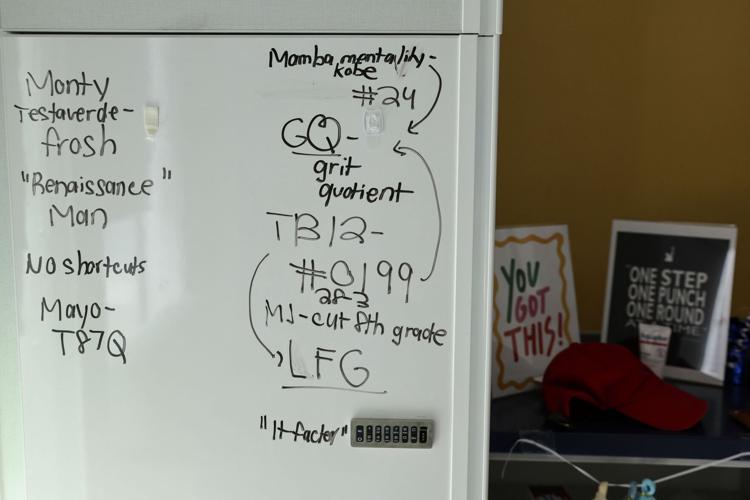 Monty
Testaverde-
frosh
"Renaissance"
Man
No shortcuts
Mayo-
T87Q
Mamba mentality-
kobe
#24
GQ-
grit
quotient
TB12-
#0199
28-3
MJ-cut 8th grade
LFG
"It factor"
YOU
GOT
THIS!
ONE STEP
ONE PUNCH
ONE ROUND